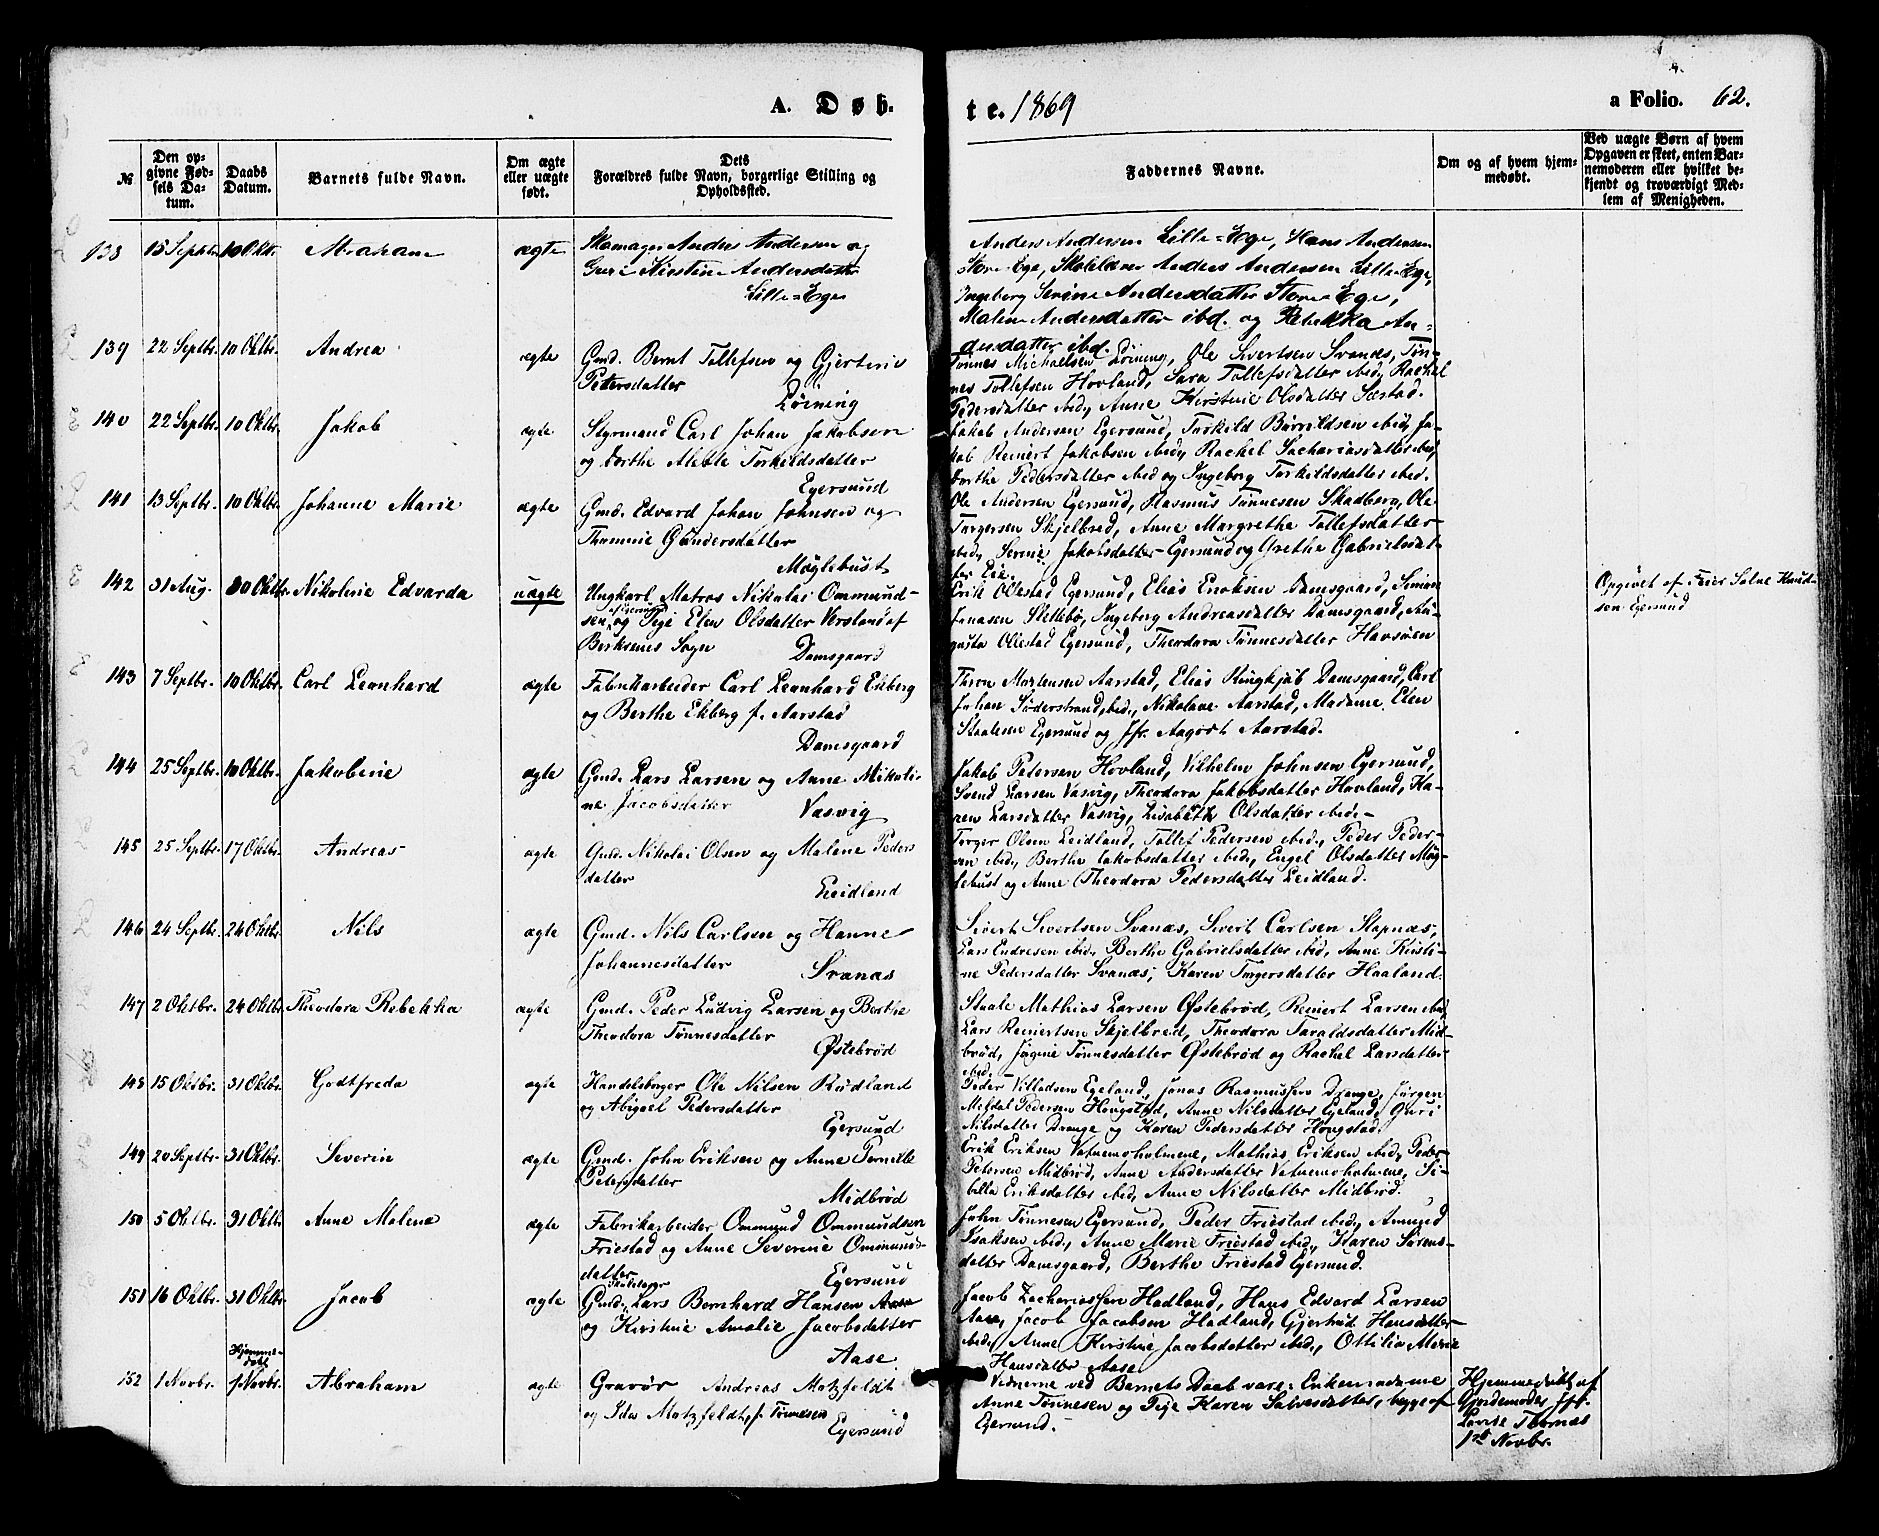 A. Døb.
te. 1869
a Folio. 62.
№
Den opgivne Fødsels Datum.
Daabs Datum.
Barnets fulde Navn.
Om ægte eller uægte født.
Dets Forældres fulde Navn, borgerlige Stilling og Opholdssted.
Faddernes Navne.
Om og af hvem hjemmedøbt.
Ved uægte Børn af hvem Opgaven er skeet, enten Barnemoderen eller hvilket bekjendt og troværdigt Medlem af Menigheden.
138 15 Septbr. 10 Oktr. Abraham ægte Skomager Anders Andersen og
Guri Kirstine Andersdatter
Lille=Ege
Anders Andersen Lille=Ege, Hans Andersen
Store Ege, Skolelærer Anders Andersen Lille=Ege,
Ingeborg Serine Andersdatter Store=Ege,
Malene Andersdatter ibd. og Rebekka An=
dersdatter ibd.
139 22 Septbr. 10 Oktbr. Andrea ægte Gmd. Bernt Tollefsen og Gjertine
Petersdatter
Löining
Tönnes Michaelsen Löining, Ole Sivertsen Svanæs, Tön-
nes Tollefsen Hovland, Sara Tollefsdatter ibid., Rachel
Pedersdatter ibid., Anne Kirstine Olsdatter Sæstad.
140 22 Septbr. 10 Oktbr. Jakob ægte Styrmand Carl Johan Jakobsen
og Berthe Alette Torkildsdatter
Egersund
Jakob Andersen Egersund, Torkild Börildsen ibid., Ja-
kob Reinert Jakobsen ibid., Rachel Sachariasdatter ibid.,
Berthe Pedersdatter ibid og Ingeborg Torkildsdatter ibid.
141 13 Septbr. 10 Oktbr. Johanne Marie ægte Gmd. Edvard Johan Johnsen og
Thomine Gundersdatter
Möglebust
Ole Andersen Egersund, Rasmus Tönnesen Skadberg, Ole
Torgersen Skjelbred, Anne Margrethe Tollefsdatter
ibid., Serine Jakobsdatter Egersund og Grethe Gabrielsdat-
ter Eie.
142 31 Aug. 10 Oktbr. Nikoline Edvarda uægte Ungkarl Matros Nikolai Ommund-
sen af Egersund og Pige Elen Olsdatter Versland af
Birkrems Sogn Damsgaard
Erik Ollestad Egersund, Elias Enoksen Damsgaard, Simon
Jonasen Slettebø, Ingeborg Andreasdatter Damsgaard, Au-
gusta Ollestad Egersund, Theodora Tönnesdatter Havsöen
Opgivet af Feier Salve Knud-
sen Egersund
143 7 Septbr. 10 Oktbr. Carl Leonhard ægte Fabrikarbeider Carl Leonhard Ekberg
og Berthe Ekberg f. Aarstad
Damsgaard
Thron Mortensen Aarstad, Elias Ringkjöb Damsgaard, Carl
Johan Söderstrand, ibid., Nikoline Aarstad, Madame Elen
Staalesen Egersund og Jfr. Aagodt Aarstad.
144 25 Septbr. 10 Oktbr. Jakobine ægte Gmd. Lars Larsen og Anne Mikoli-
ne Jacobsdatter Vasvig
Jakob Petersen Hovland, Vilhelm Johnsen Egersund,
Svend Larsen Vasvig, Theodora Jakobsdatter Hovland, Ka-
ren Larsdatter Vasvig, Lisabeth Olsdatter ibid.
145 25 Septbr. 17 Oktbr. Andreas ægte Gmd. Nikolai Olsen og Malene Peders
datter
Leidland
Torger Olsen Leidland, Tollef Pedersen ibid., Peder Peder-
sen ibid., Berthe Jakobsdatter ibid., Engel Olsdatter Mög-
lebust og Anne Theodora Pedersdatter Leidland.
146 24 Septbr. 24 Oktbr. Nils ægte Gmd. Nils Carlsen og Hanne
Johannesdatter Svanæs
Sivert Sivertsen Svanæs, Sivert Carlsen Stapnæs,
Lars Endresen ibid., Berthe Gabrielsdatter ibid., Anne Kirsti-
ne Pedersdatter Svanæs, Karen Torgersdatter Haaland.
147 2 Oktbr. 24 Oktbr. Theodora Rebekka ægte Gmd. Peder Ludvig Larsen og Berthe
Theodora Tönnesdatter
Østebrød
Staale Mathias Larsen Østebrød, Reinert Larsen ibid.,
Lars Reinertsen Skjelbred, Theodora Taraldsdatter Mid-
brød, Jörgine Tönnesdatter Østebrød og Rachel Larsdatter
ibid.
148 15 Oktbr. 31 Oktbr. Godtfreda ægte Handelsborger Ole Nilsen Rødland
og Abigael Pedersdatter
Egersund
Peder Villadsen Egeland, Jonas Rasmussen Drange, Jörgen
Meldal Pedersen Hougstad, Anne Nilsdatter Egeland, Guri
Nilsdatter Drange og Karen Pedersdatter Hougstad.
149 20 Septbr. 31 Oktbr. Severin ægte Gmd. John Eriksen og Anne Pernille
Petersdatter
Midbrød
Erik Eriksen Vatnemoholmene, Mathias Eriksen ibid., Peder
Petersen Midbrød, Anne Andersdatter Vatnemoholmene, Si-
bille Eriksdatter ibid., Anne Nilsdatter Midbrød.
150 5 Oktbr. 31 Oktbr. Anne Malene ægte Fabrikarbeider Ommund Ommundsen
Friestad og Anne Severine Ommunds-
datter Egersund
John Tönnesen Egersund, Peder Friestad ibid., Amund
Isaksen ibid., Anne Marie Friestad ibid., Karen Sörens-
datter Damsgaard, Berthe Friestad Egersund.
151 16 Oktbr. 31 Oktbr. Jacob ægte Gmd., Skolelærer Lars Bernhard Hansen Aase
og Kirstine Amalie Jacobsdatter
Aase
Jacob Zachariassen Hadland, Hans Edvard Larsen
Aase, Jacob Jacobsen Hadland, Gjertrud Hansdatter
ibid., Anne Kirstine Jacobsdatter ibid., Ottilia Marie
Hansdatter Aase
152 1 Novbr. Hjemme-
døbt 1 Novbr. Abraham ægte Gravør Andreas Motzfeldt
og Ida Motzfeldt, f. Tönnesen
Egersund
Vidnerne ved Barnets Daab vare: Enkemadame
Anne Tönnesen og Pige Karen Salvesdatter, begge af
Egersund.
Hjemmedøbt af
Gjordemoder Jfr.
Lovise Thornæs
1ste Novbr.